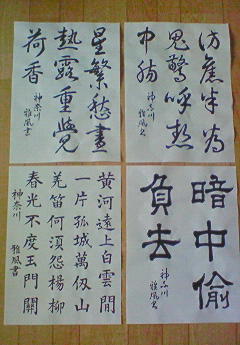 訪舊半為
鬼驚呼熱
中腸
神奈川 雅風書
星繁愁晝
熱露重覺
荷香
神奈川 雅風書
暗中偷
負去
神奈川 雅風書
黄河遠上白雲間
一片孤城萬仞山
羌笛何須怨楊柳
春光不度玉門關
神奈川 雅風書